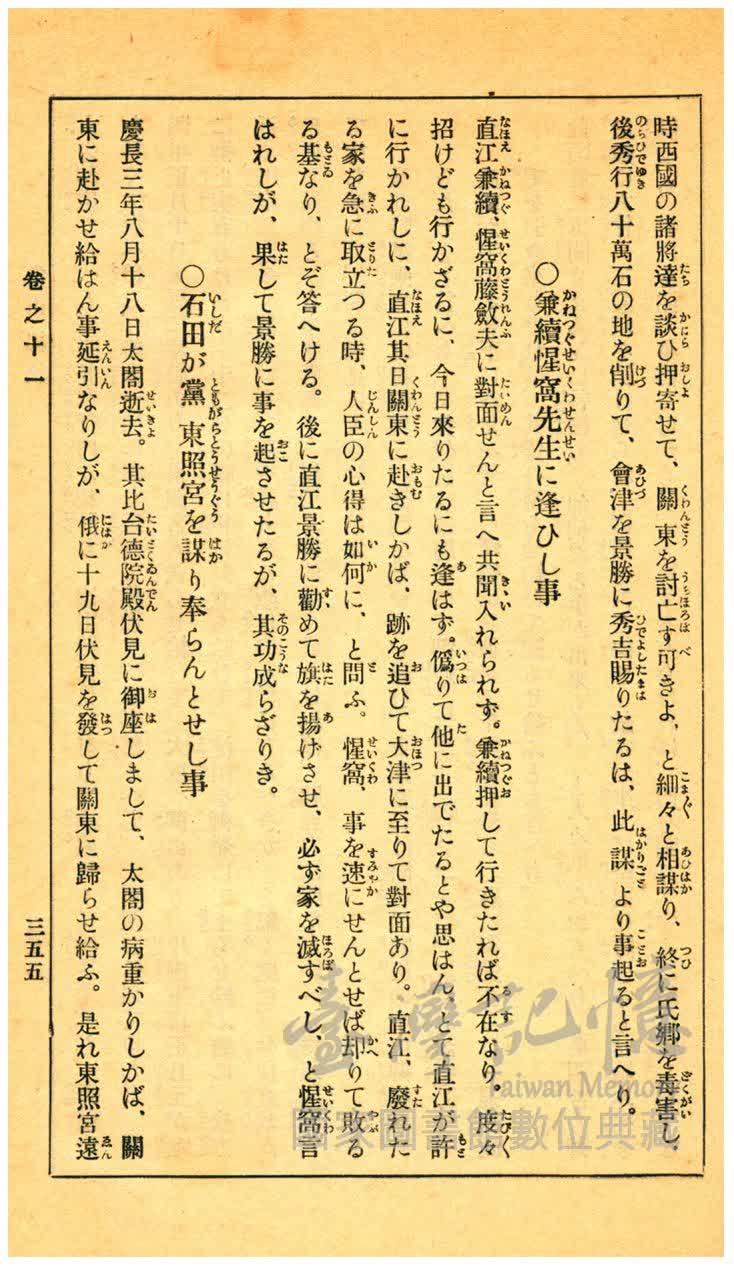 時西國の諸將達を談ひ押寄せて、關東を討亡す可きよ、と細々と相謀り、終に氏鄕を毒害し、
後秀行八十萬石の地を削りて、會津を景勝に秀吉賜りたるは、此謀より事起ると言へり。
〇兼續惺窩先生に逢ひし事
直江兼續、惺窩藤斂夫に對面せんと言へ共聞入れられず。兼續押して行きたれば不在なり。度々
招けども行かざるに、今日來りたるにも逢はず。僞りて他に出でたるとや思はん、とて直江が許
に行かれしに、直江其日關東に赴きしかば、跡を追ひて大津に至りて對面あり。直江、廢れた
る家を急に取立つる時、人臣の心得は如何に、と問ふ。惺窩、事を速にせんとせば却りて敗る
る基なり、とぞ答へける。後に直江景勝に勸めて旗を揚げさせ、必ず家を滅すべし、と惺窩言
はれしが、果して景勝に事を起させたるが、其功成らざりき。
〇石田が黨東照宮を謀り奉らんとせし事
慶長三年八月十八日太閤逝去。其比台德院殿伏見に御座しまして、太閤の病重かりしかば、關
東に赴かせ給はん事延引なりしが、俄に十九日伏見を發して關東に歸らせ給ふ。是れ東照宮遠
卷之十一
三五五
臺灣記憶
Taiwan Memory
國家圖書館數位典藏